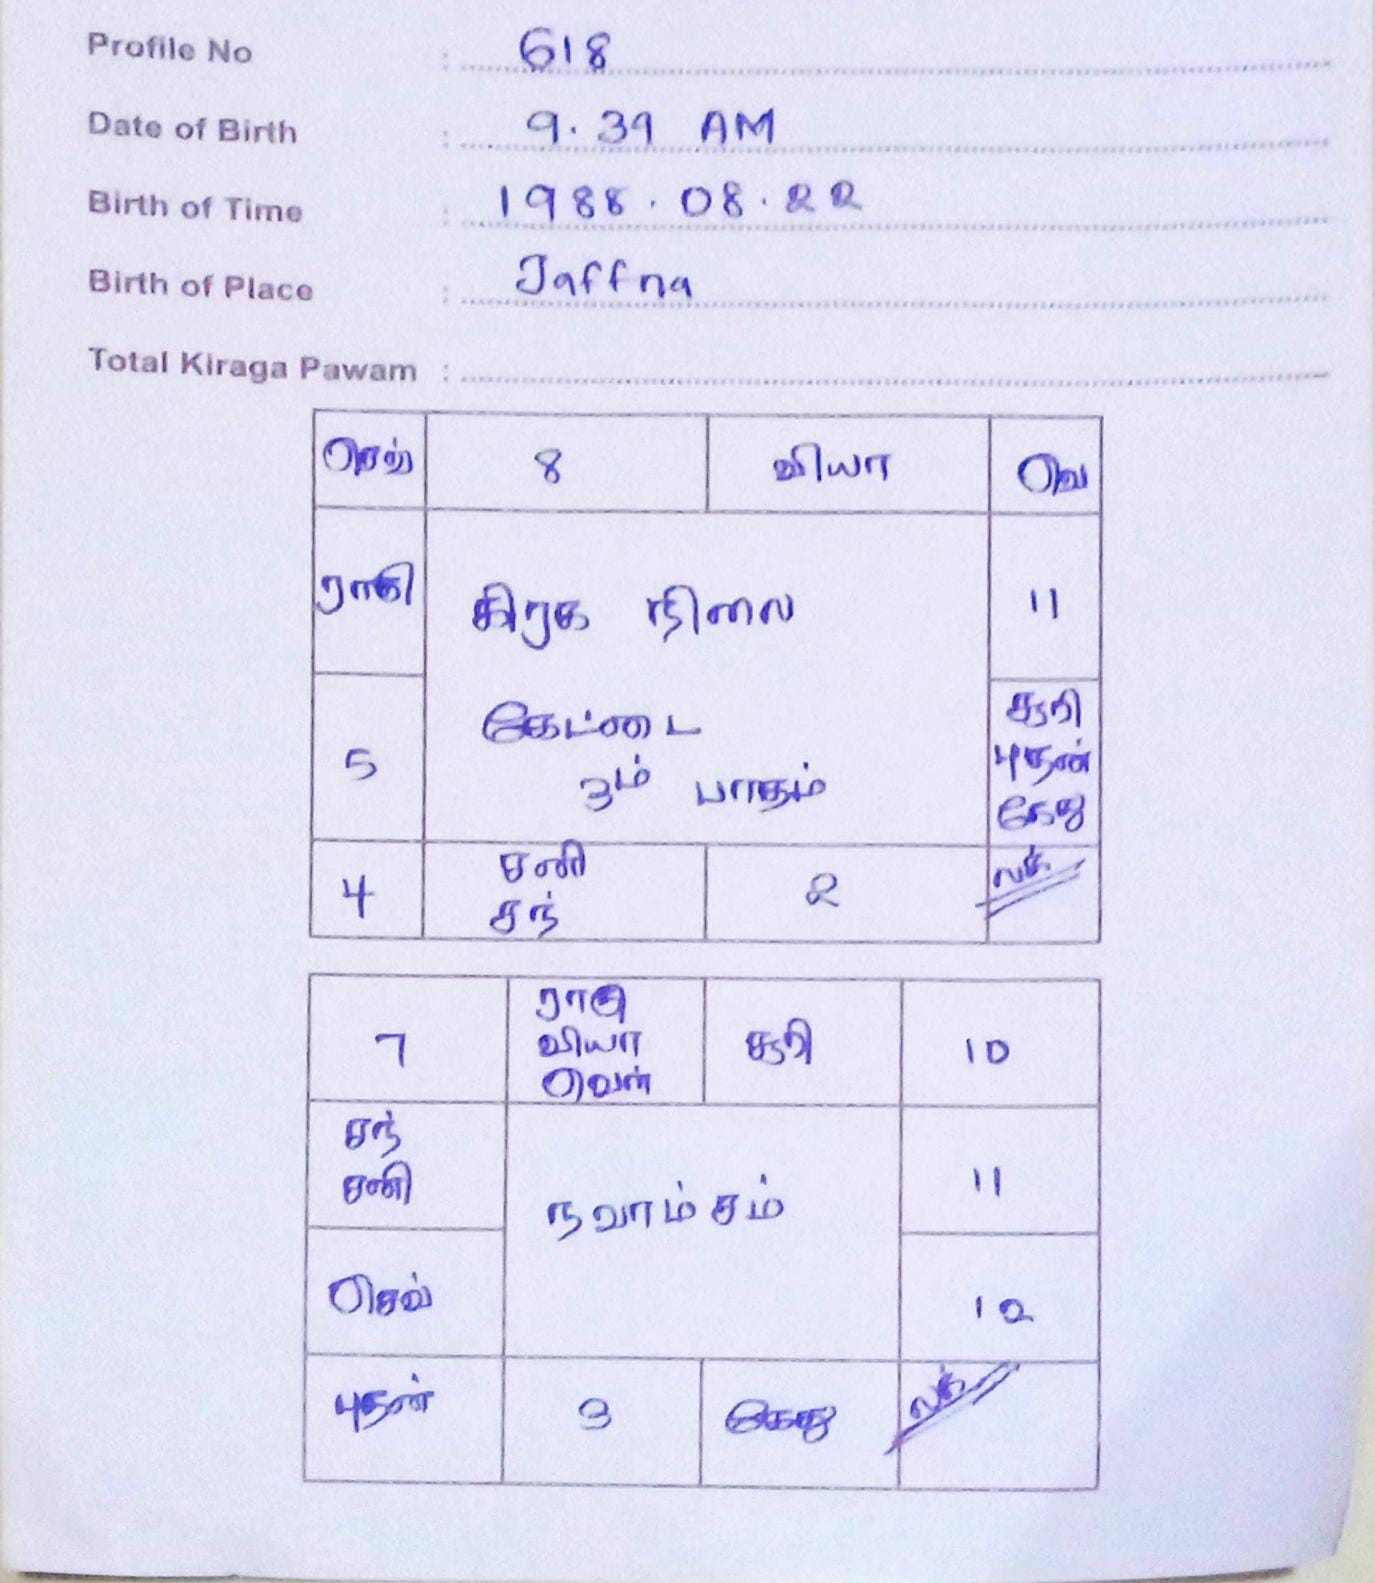 Profile No : 618
Date of Birth : 9.39 AM
Birth of Time : 1988.08.22
Birth of Place : Jaffna
Total Kiraga Pawam :
செவ் 8 வியா வெ
ராகு 11
கிரக நிலை
கேட்டை
3ம் பாதம்
5
சூரி
புதன்
கேது
4
சனி
சந்
2 லக்
7
ராகு
வியா
வெள்
சூரி 10
சந்
சனி
நவாம்சம்
11
செவ் 12
புதன் 3 கேது லக்